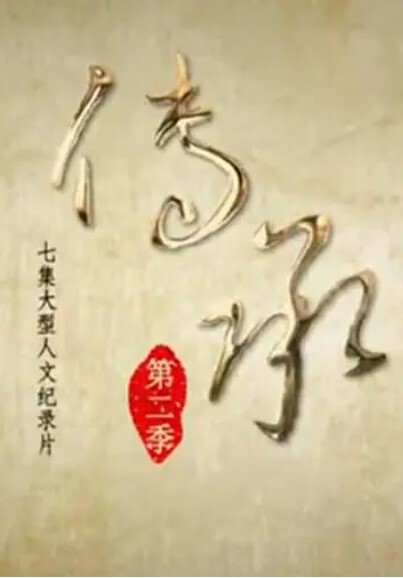 传承
七集大型人文纪录片
第二季